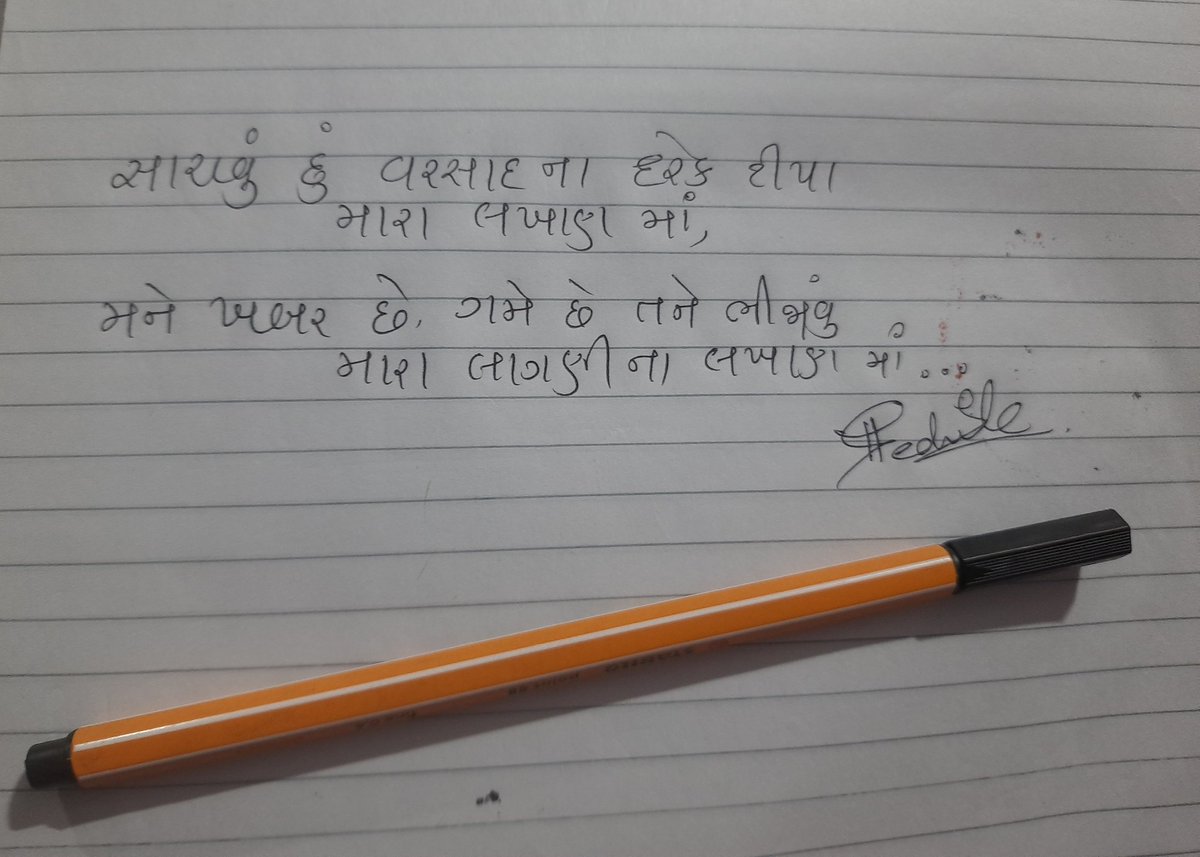 સાચવું હું વરસાદ ના દરેક ટીપા
મારા લખાણ માં,
મને ખબર છે. ગમે છે તને ભીંજાવું
મારા લાગણી ના લખાણ માં...